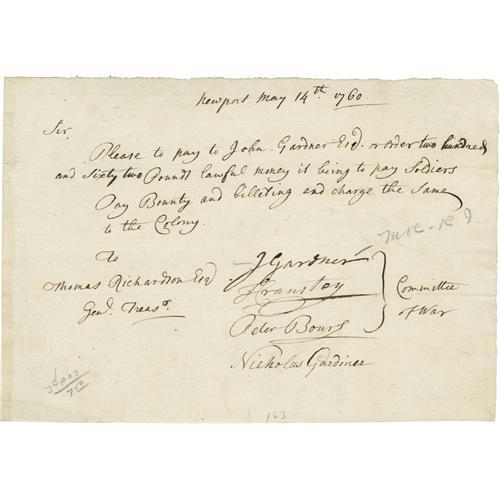 Newport May 14th. 1760
Sir.
Please to pay to John Gardner Esqr. or order two hundred
and Sixty two Pounds lawful money it being to pay Soldiers
Pay Bounty and billiting and charge the Same
to the Colony.
To
Thomas Richardson Esqr
Genl. Treasr.
J Gardner
J Cranston
Peter Bours
Nicholas Gardiner
Committee
of War
163